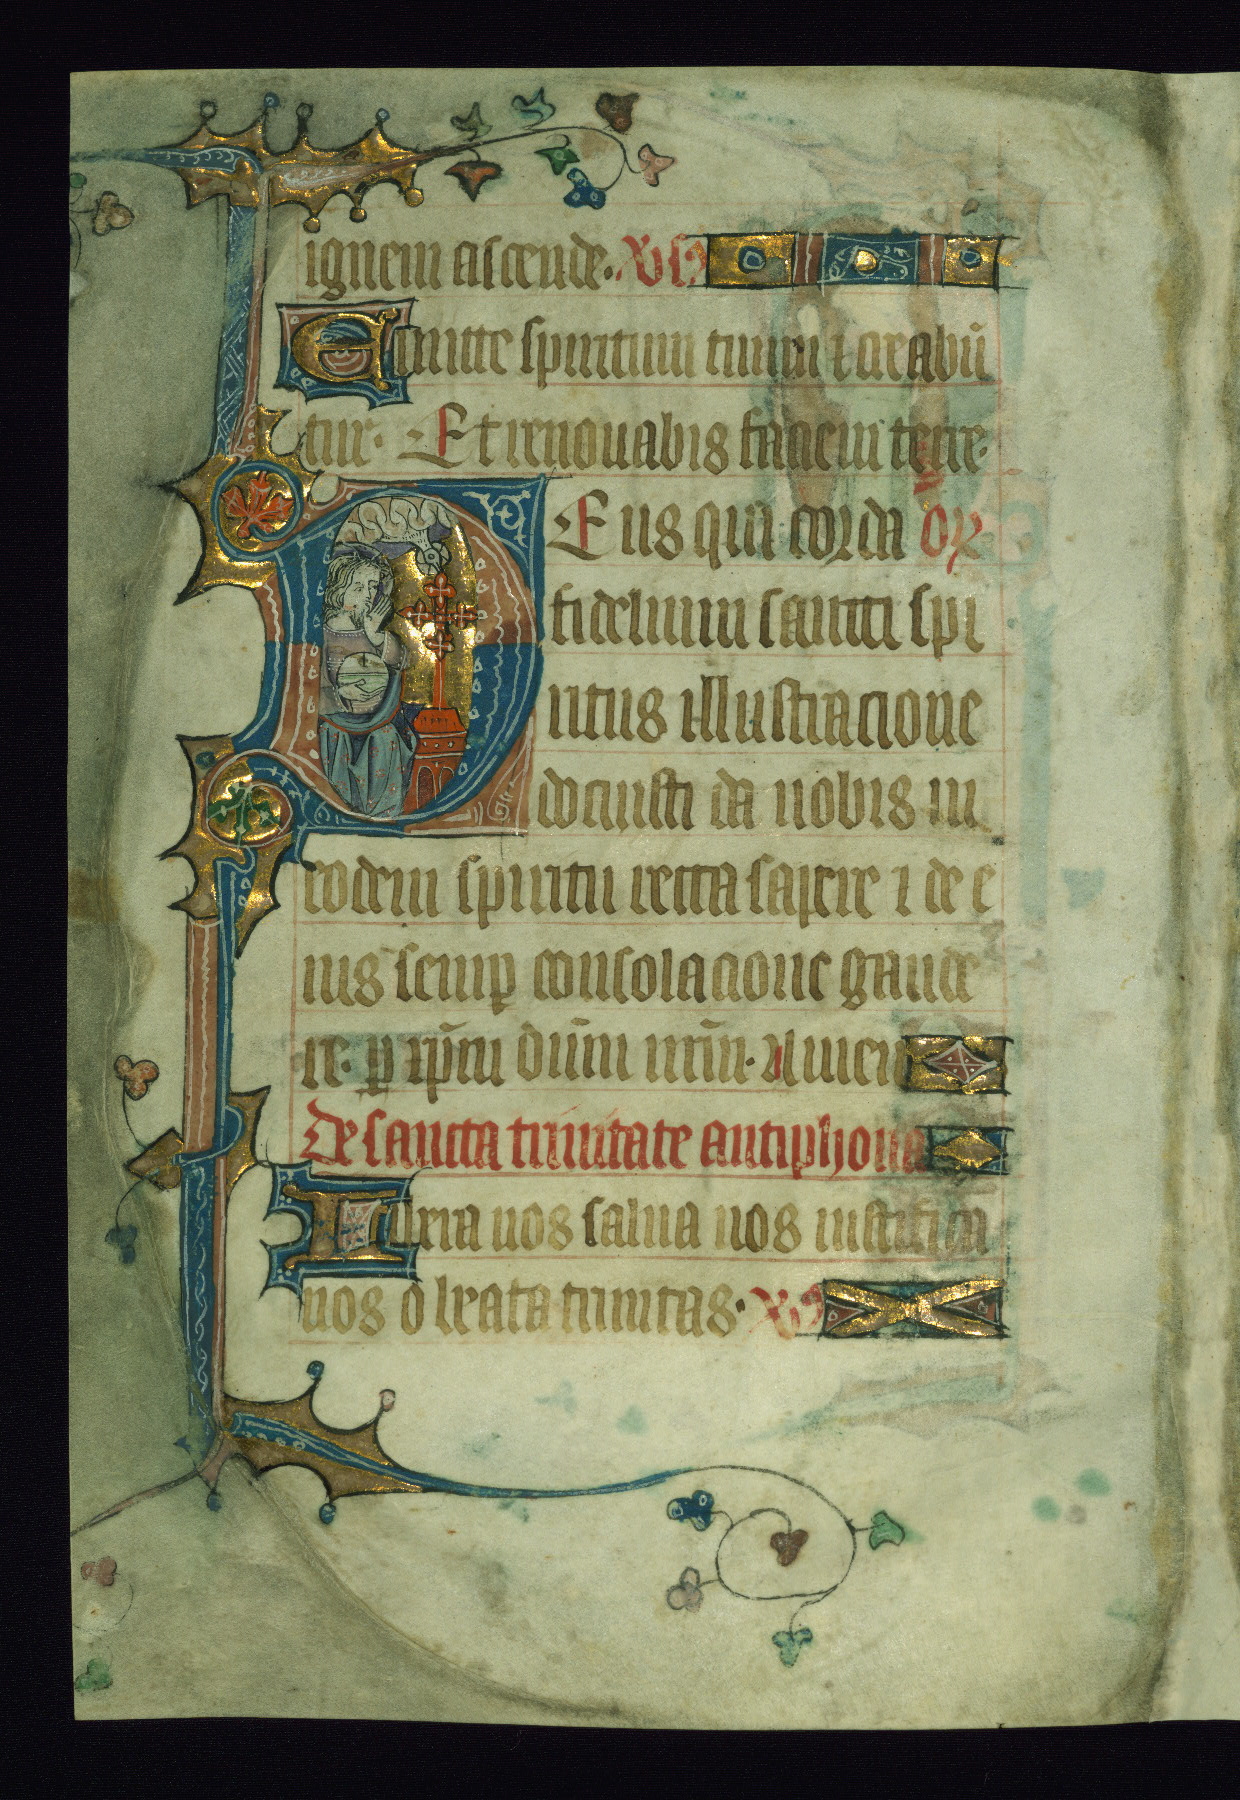 ignem accende. V̾sꝰ
Emitte spiritum tuum ⁊ creabū
tur. Et renouabis faciem terre.
Deus qui corda Or̄
fidelium sancti spi
ritus illustracione
docuisti da nobis in
eodem spiritu recta sapere ⁊ de e
ius semꝑ consolacione gaude
re. ꝑ xp̄m dn̄m nr̄m. Amen
De sancta trinitate antiphona
Libera nos salua nos iustifica
nos o beata trinitas. V̾sꝰ